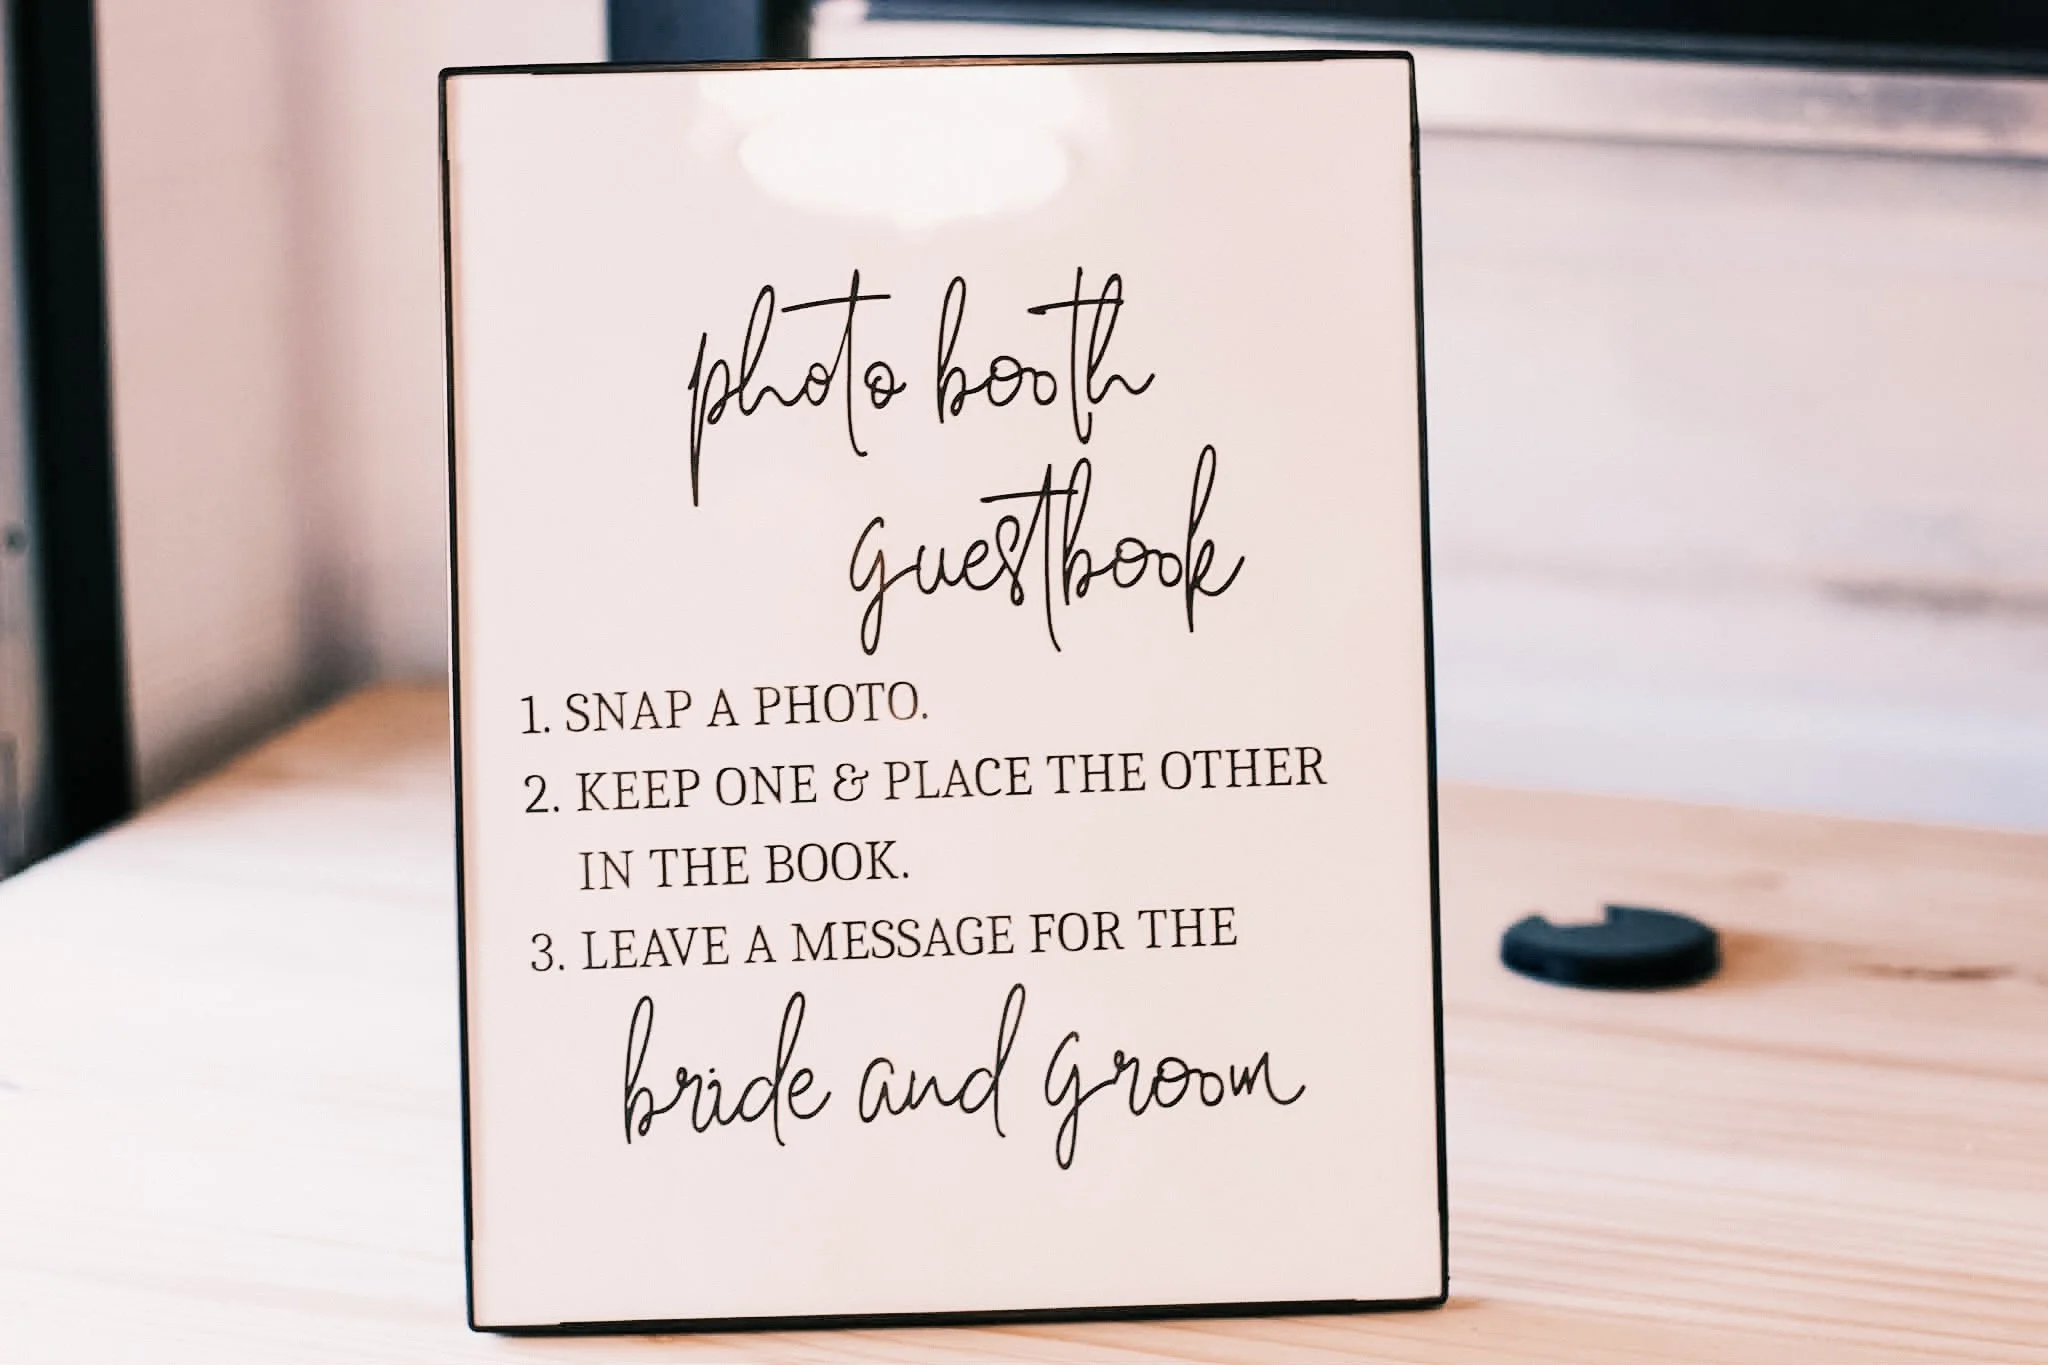 photo booth
guestbook
1. SNAP A PHOTO.
2. KEEP ONE & PLACE THE OTHER
IN THE BOOK.
3. LEAVE A MESSAGE FOR THE
bride and groom